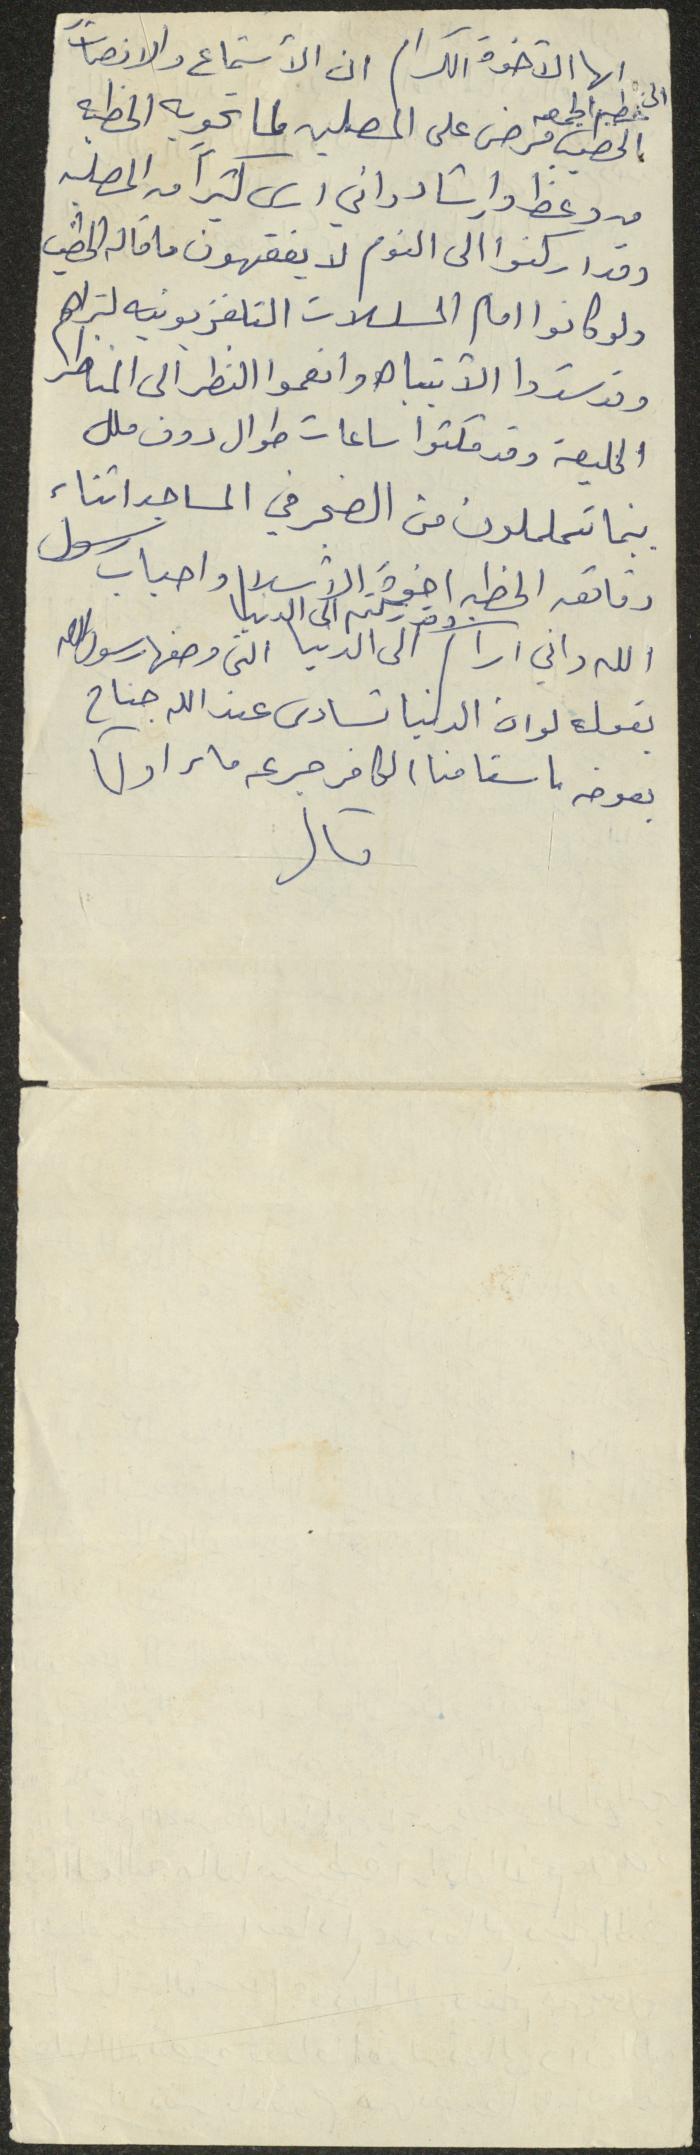 ايها الأخوة الكرام ان الأستماع والانصات
الى خطبة الجمعه
الخطيب فرض على المصلين لما تحويه الخطبه
من وعظ وارشاد واني ارى كثيراً من المصلين
وقد اركنوا الى النوم لا يفقهون ما قاله الخطيب
ولو كانوا امام المسلسلات التلفزيونيه لتراهم
وقد شدوا الأنتباه وانعموا النظر الى المناظر
الخليعة وقد مكثوا ساعات طوال دون ملل
بينما تتململون من الضجر في المساجد اثناء
دقائق الخطبه اخوة الأسلام واحباب رسول
وقد ركنتم الى الدنيا
الله واني اراكم الى الدنيا التي وصفها رسول الله
بقوله لو ان الدنيا تساوى عند الله جناح
بعوضه ما سقا منها الكافر جرعه ماء او كما
قال